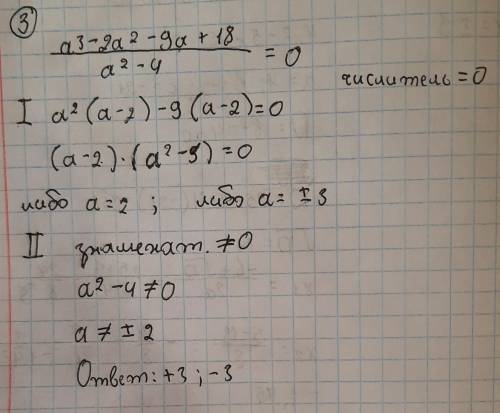 3
a³-2a²-9a+18 / a²-4 = 0
числитель=0
I a²(a-2)-9(a-2)=0
(a-2)·(a²-9)=0
либо a=2 ; либо a=±3
II знаменат. ≠0
a²-4≠0
a≠±2
Ответ: +3 ; -3